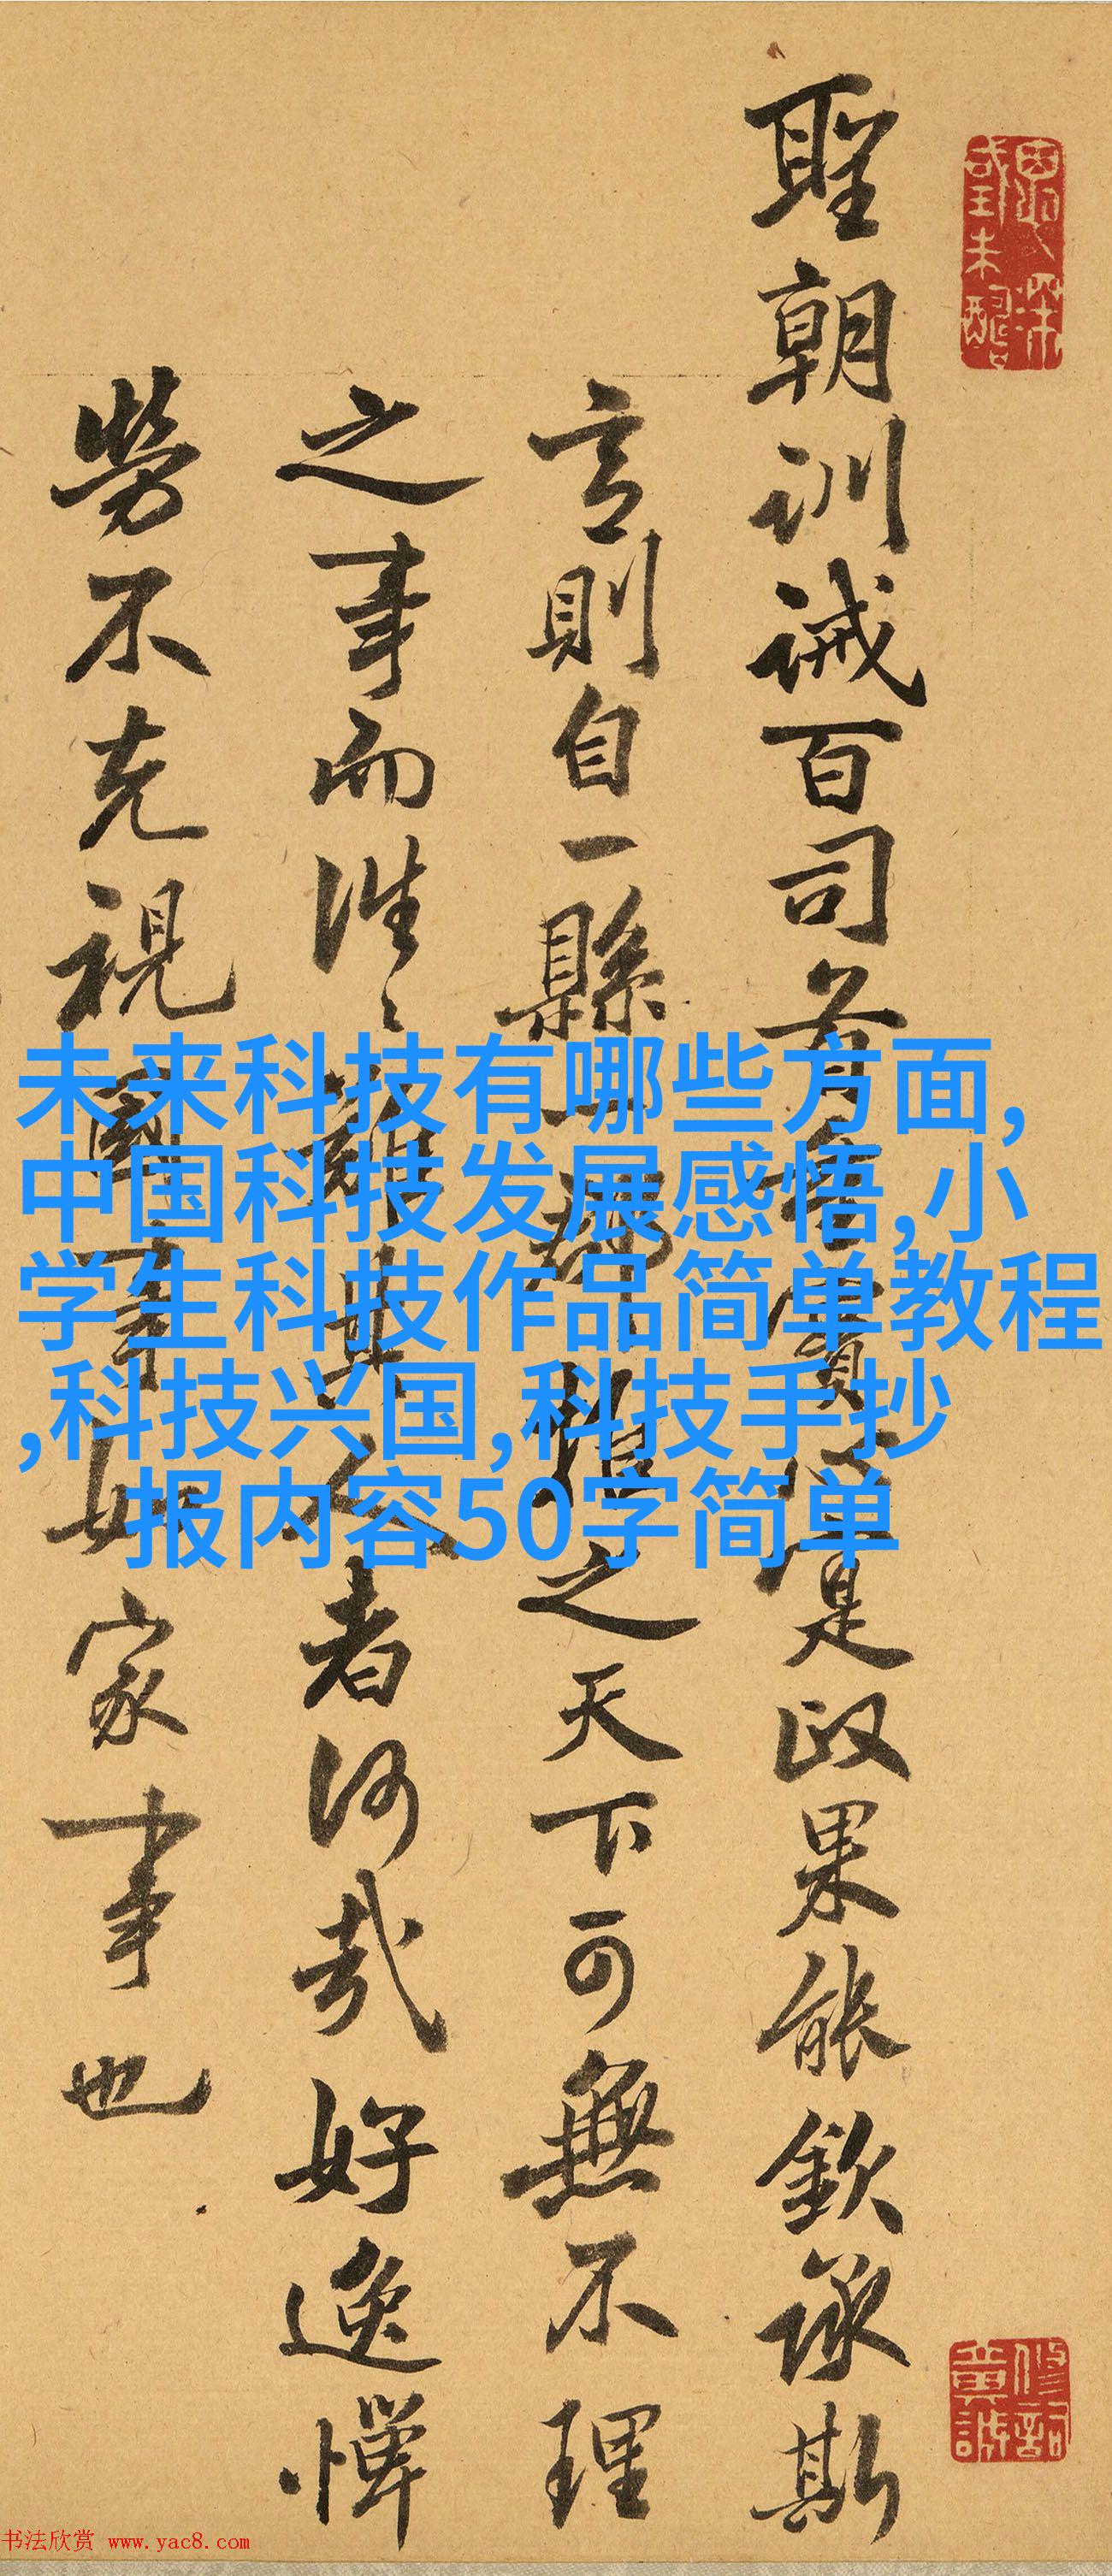 聖朝訓誡百司首實是政果能欽承斯
言則自一縣一郡推之天下可無不理
之事而往〻難其人者何哉好逸憚
勞不克視國事如家事也
未来科技有哪些方面,
中国科技发展感悟,小
学生科技作品简单教程
,科技兴国,科技手抄
报内容50字简单
书法欣赏 www.yac8.com